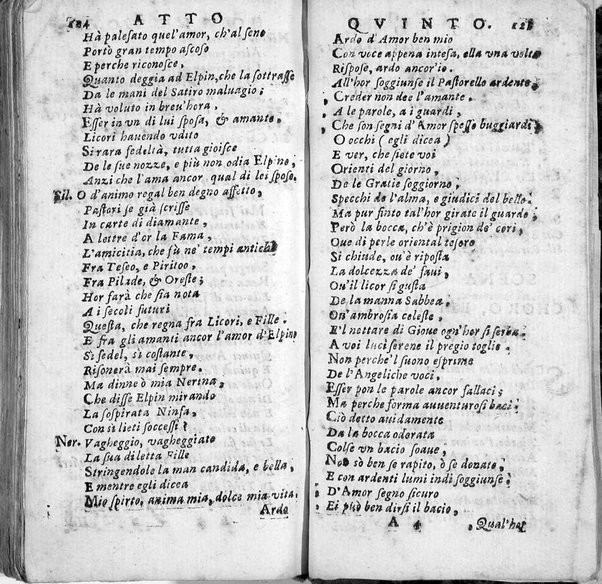 124 ATTO
Hà palesato quel'amor, ch'al seno
Portò gran tempo ascoso
E perche riconosce,
Quanto deggia ad Elpin, che la sottrasse
Da le mani del Satiro maluagio;
Hà voluto in breu'hora,
Esser in vn di lui sposa, & amante,
Licori hauendo vdito
Si rara fedeltà, tutta gioisce
De le sue nozze, e più non odia Elpino,
Anzi che l'ama ancor qual di lei sposo.
Fil. O d'animo regal ben degno affetto,
Pastori se già scrisse
In carte di diamante,
A lettre d'or la Fama,
L'amicitia, che fù ne' tempi antichi
Fra Teseo, e Piritoo,
Fra Pilade, & Oreste;
Hor farà che sia nota
A i secoli futuri
Questa, che regna fra Licori, e Fille.
E fra gli amanti ancor l'amor d'Elpino
Sì fedel, sì costante,
Risonerà mai sempre.
Ma dinne ò mia Nerina,
Che disse Elpin mirando
La sospirata Ninfa,
Con sì lieti successi?
Ner. Vagheggio, vagheggiato
La sua diletta Fille
Stringendole la man candida, e bella,
E mentre egli dicea
Mio spirto, anima mia, dolce mia vita.
Ardo
QVINTO. 125
Ardo d'Amor ben mio
Con voce appena intesa, ella vna volta
Rispose, ardo ancor'io.
All'hor soggiunse il Pastorello ardente,
Creder non dee l'amante.
A le parole, a i guardi,
Che son segni d'Amor spesso buggiardi;
O occhi (egli dicea)
E ver, che siete voi
Orienti del giorno,
De le Gratie soggiorno,
Specchi de l'alma, e giudici del bello.
Ma pur finto tal'hor girate il guardo;
Però la bocca, ch'è prigion de' cori,
Oue di perle oriental tesoro
Si chiude, ou'è riposta
La dolcezza de' faui,
Ou'il licor si gusta
De la manna Sabbea,
Ou'ambrosia celeste,
E'l nettare di Gioue ogn'hor si serba.
A voi luci serene il pregio toglie.
Non perche'l suono esprima
De l'Angeliche voci,
Esser pon le parole ancor fallaci;
Ma perche forma auuenturosi baci;
Ciò detto auidamente
Da la bocca odorata
Colse vn bacio soaue,
Non sò ben se rapito, ò se donato,
E con ardenti lumi indi soggiunse:
D'Amor segno sicuro
Ei può ben dirsi il bacio,
A 4 Qual'hor